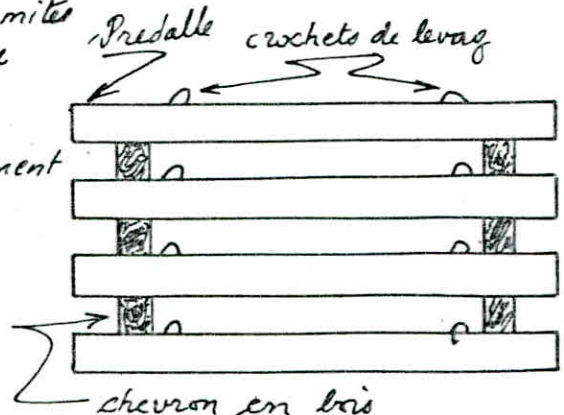 mites
Prédalle crochets de levag
e
ment
chevron en bois